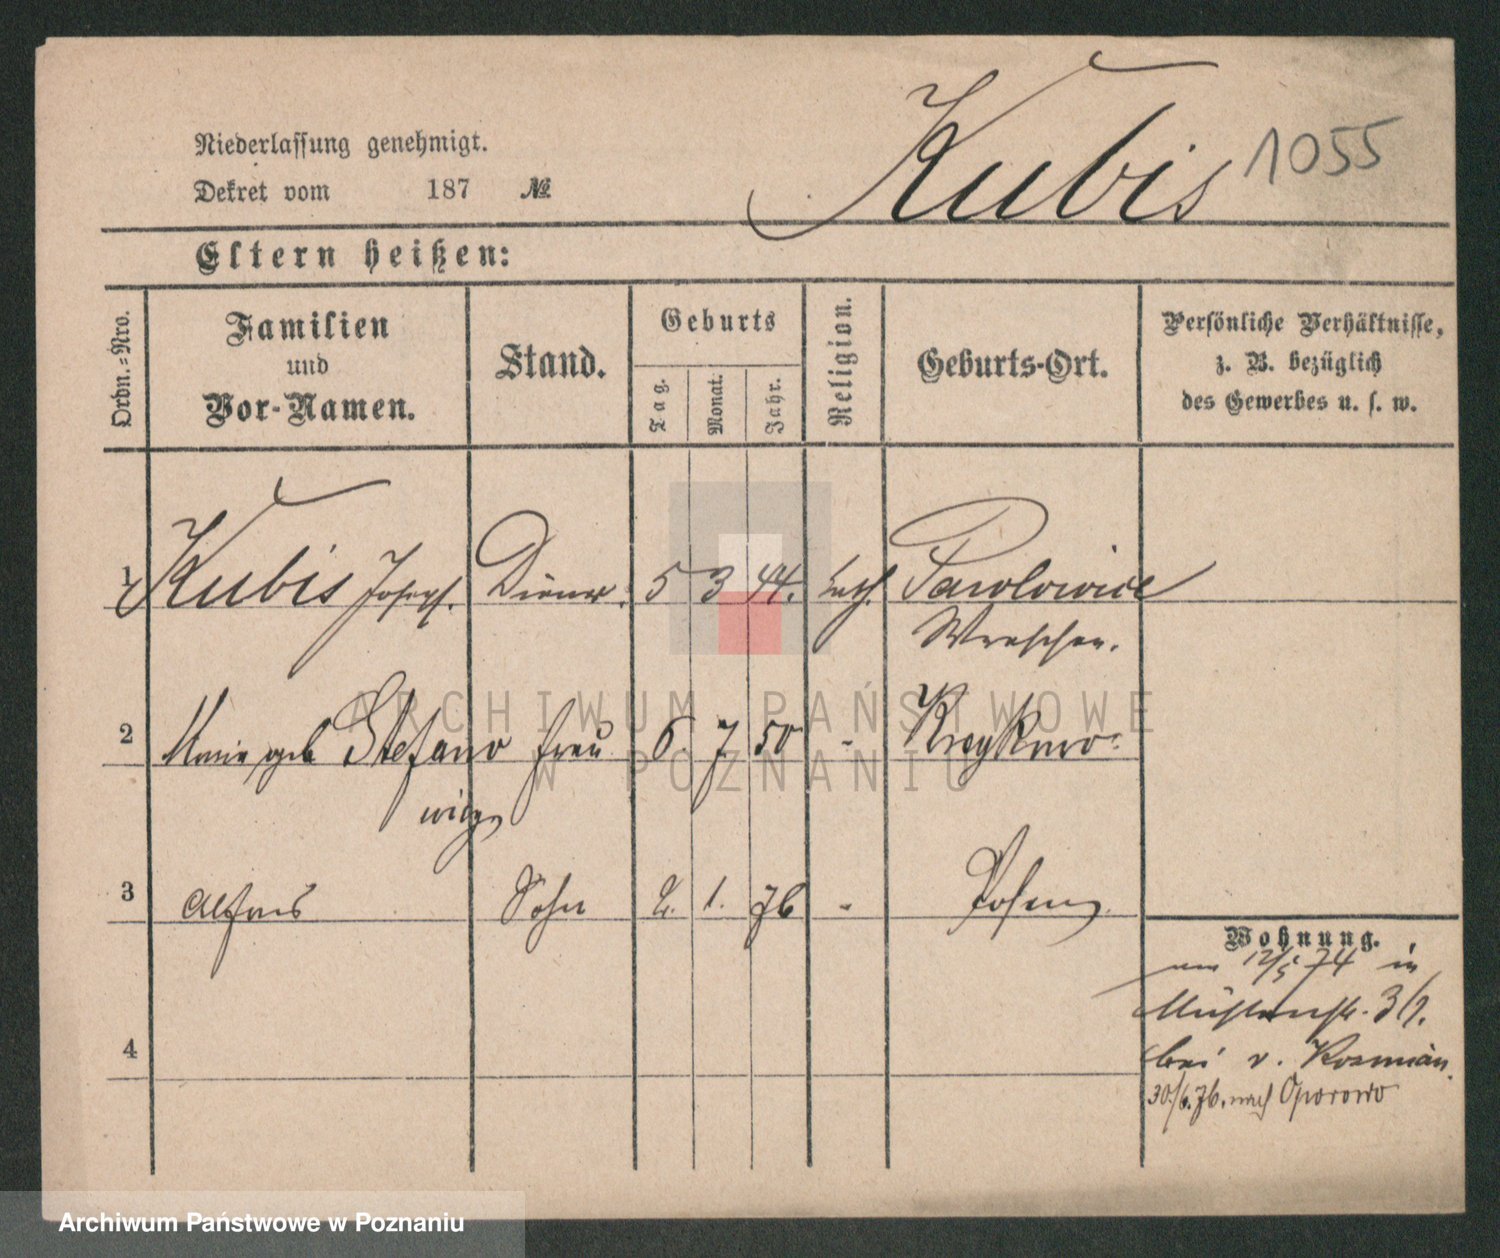 Kubis 1055
Niederlassung genehmigt.
Dekret vom 187 №
Eltern heißen:
Ordn.=Nro.
Familien
und
Vor-Namen.
Stand.
Geburts
Tag.
Monat.
Jahr.
Religion.
Geburts-Ort.
Persönliche Verhältnisse,
z. B. bezüglich
des Gewerbes u. s. w.
1 Kubis Joseph. Diener. 5 3 44. kath. Pawlowice
Wreschen.
2 Marie geb Stefano Frau 6. 7 50 -
wicz
3 Alfons Sohn 2. 1. 76 - Posen
4
Wohnung.
am 12/5 74 in
Mühlenstr. 3/4.
bei v. Kozmian.
30/6. 76. nach Oporowo
ARCHIWUM PAŃSTWOWE
W POZNANIU
Archiwum Państwowe w Poznaniu